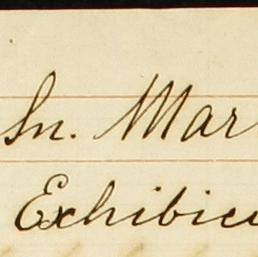 Sn. Mar
Exhibici